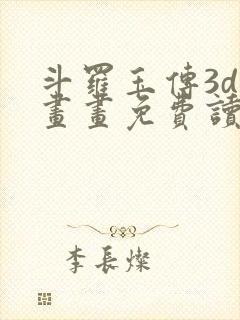 斗羅玉傳3d
畫畫免費讀
李長燦